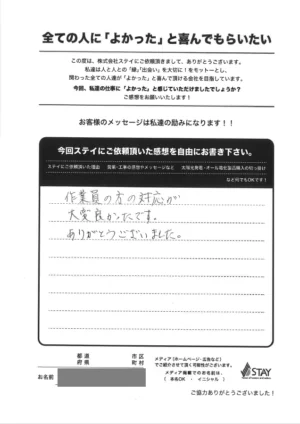 全ての人に「よかった」と喜んでもらいたい
この度は、株式会社ステイにご依頼頂きまして、ありがとうございます。
私達は人と人との「縁」「出会い」を大切に！をモットーとし、
関わった全ての人達が「よかった」と喜んで頂ける会社を目指しています。
今回、私達の仕事に「よかった」と感じていただけましたでしょうか？
ご感想をお願いいたします！
お客様のメッセージは私達の励みになります！！
今回ステイにご依頼頂いた感想を自由にお書き下さい。
ステイにご依頼頂いた理由　営業・工事の感想やメッセージなど　太陽光発電・オール電化製品購入の切っ掛け
など何でもOKです！
作業員の方の対応が
大変良かったです。
ありがとうございました。
都道 府県　市区 町村
お名前
メディア（ホームページ・広告など）
でご紹介させて頂く可能性がございます。
メディア掲載でのお名前は
（ 本名OK ・ イニシャル ）
STAY
ご協力ありがとうございました！